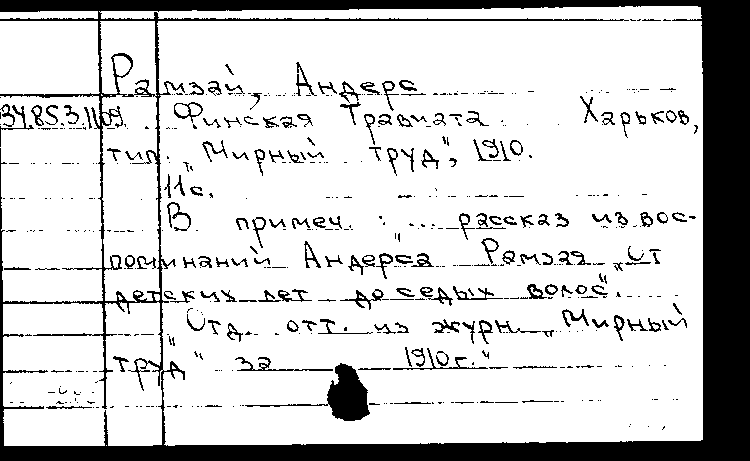 Рамзай, Андерс
34.85.3.1109 Финская Травиата. Харьков,
тип. „Мирный труд", 1910.
11с.
В примеч.: „... рассказ из вос-
поминаний Андерса Рамзая „От
детских лет до седых волос".
„Отд. отт. из журн. „Мирный
труд" за 1910г."